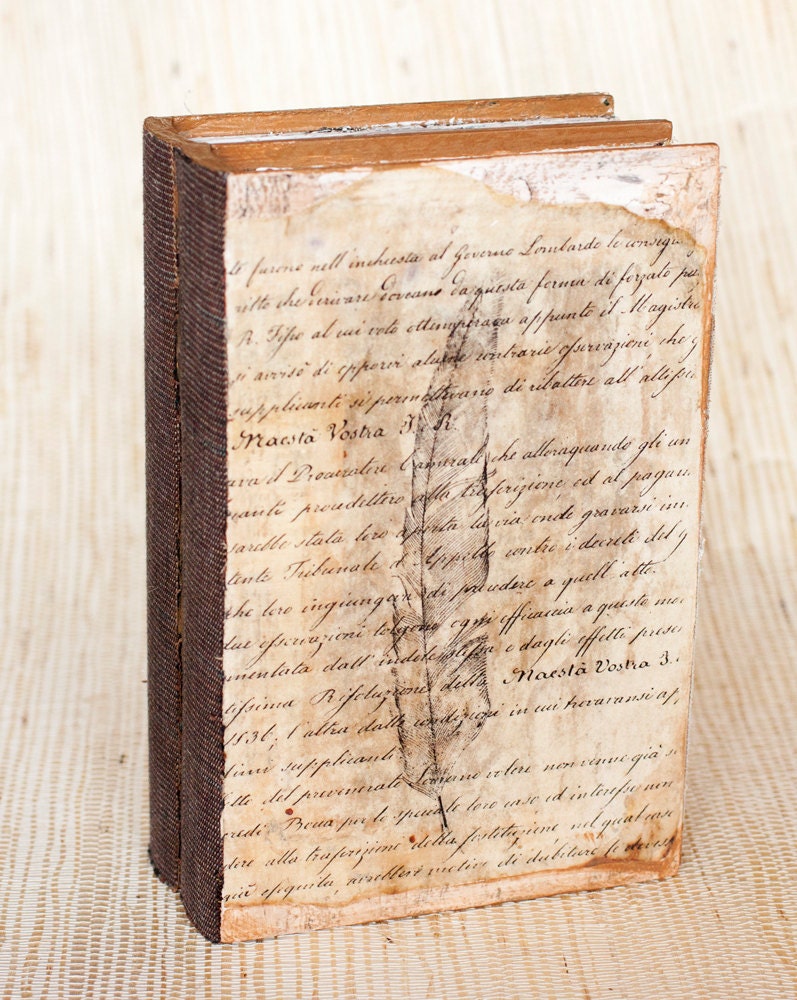 te furono nell'inchiesta al Governo Lombardo le conseg
ritto che derivare doveano da questa forma di forzato pu
R. Fisco al cui voto ottemperava appunto il Magistr
si avvisò di opporvi alcune contrarie osservazioni che g
supplicanti si permettevano di ribattere all'
Maestà Vostra I. R.
ava il Procuratore Camerale che alloraquando gli un
canti procedettero alla trascrizione ed al pagan
sarebbe stata loro aperta la via onde gravarsi in
tente Tribunale d'Appello contro i decreti del g
che loro ingiungeva di procedere a quell'atto.
due osservazioni tolgono ogni efficacia a questo mo
mentata dall'indole stessa e dagli effetti prese
tissima Risoluzione della Maestà Vostra I.
1836, l'altra dalle condizioni in cui trovavansi ap
timi supplicanti
tto del prevenerato Sovrano volere non venne già s
credi Bocca per lo speciale loro caso ed interesse non
dere alla trascrizione della sostituzione nel qual caso
già eseguita, avrebbero motivo di dubitare se doves